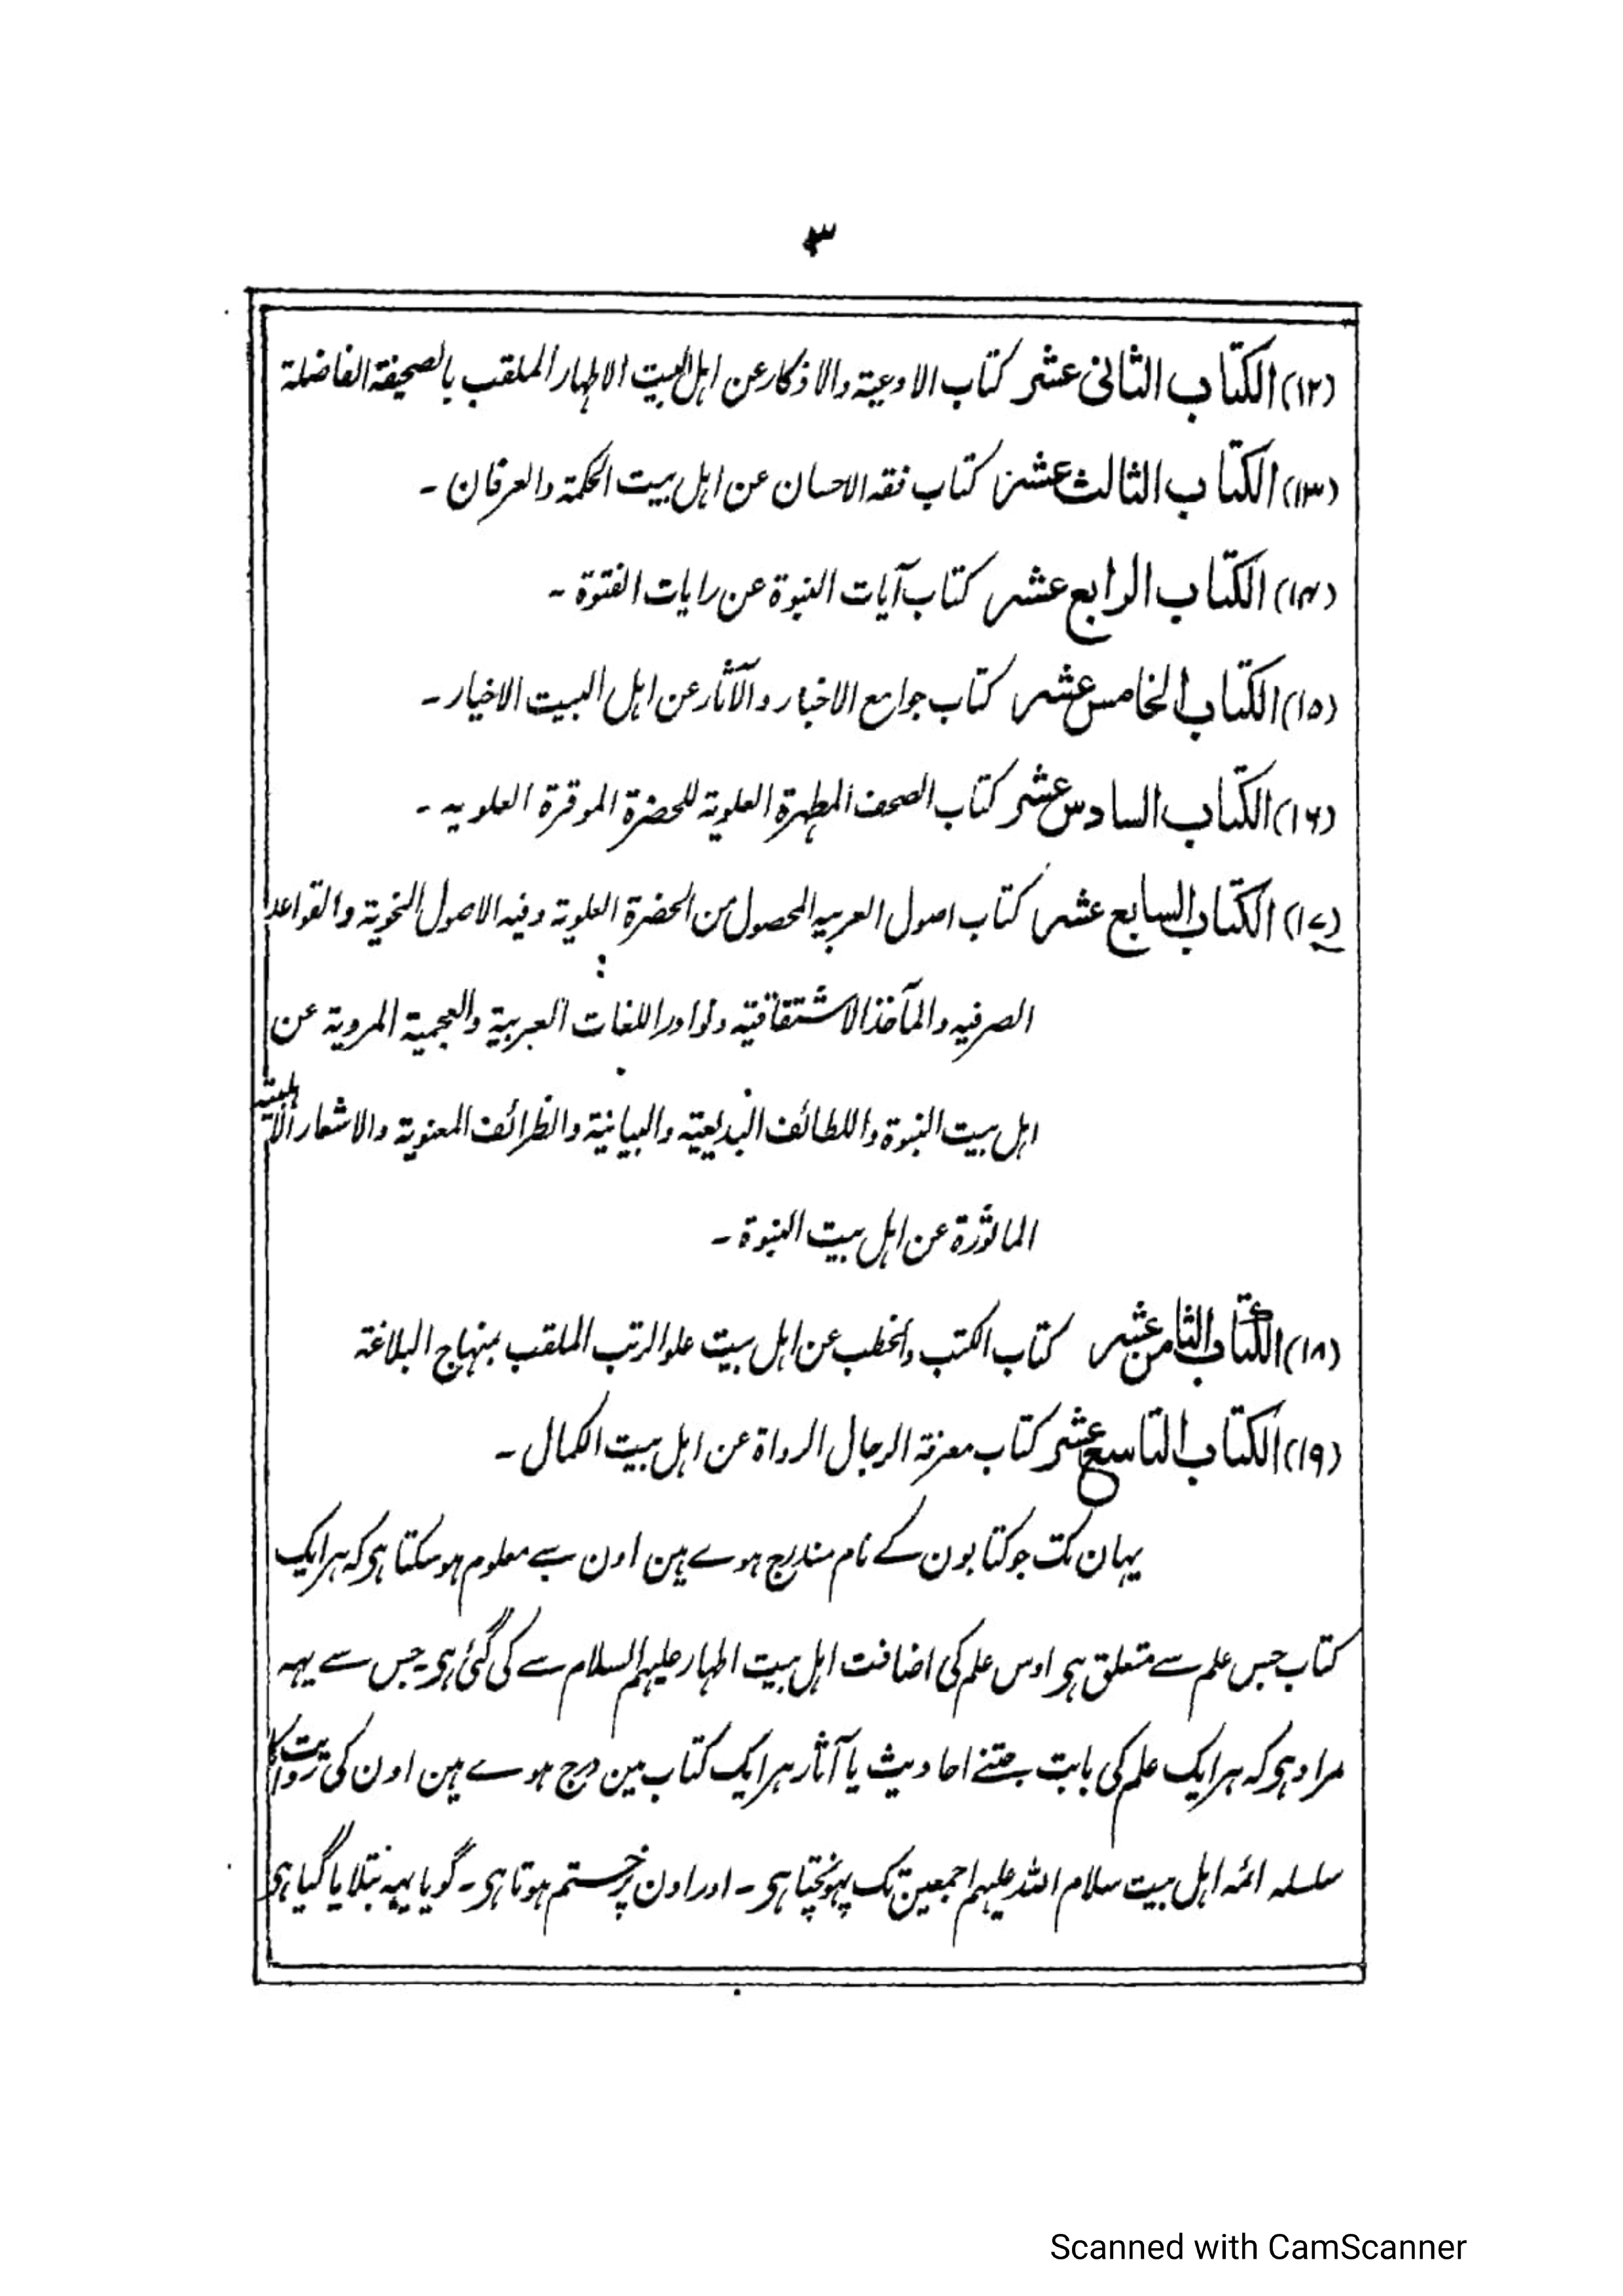 ۳
(۱۲) الکتاب الثانی عشر کتاب الادعیة والاذکار عن اہل البیت الاطہار الملقب بالصحیفة الفاضلة
(۱۳) الکتاب الثالث عشر کتاب فقه الاحسان عن اہل بیت الحکمة والعرفان ۔
(۱۴) الکتاب الرابع عشر کتاب آیات النبوة عن رایات الفتوة ۔
(۱۵) الکتاب الخامس عشر کتاب جوامع الاخبار والآثار عن اہل البیت الاخیار ۔
(۱۶) الکتاب السادس عشر کتاب الصحف المطہرة العلویة للحضرة الموقرة العلویہ ۔
(۱۷) الکتاب السابع عشر کتاب اصول العربیہ المحصول من الحضرة العلویة وفیہ الاصول النحویة والقواعد
الصرفیہ والمآخذ الاشتقاقیة ونوادر اللغات العربیة والعجمیة المرویة عن
اہل بیت النبوة واللطائف البدیعیة والبیانیة والظرائف المعنویة والاشعار
الماثورة عن اہل بیت النبوة ۔
(۱۸) الکتاب الثامن عشر کتاب الکتب والخطب عن اہل بیت علو الرتب الملقب بمنہاج البلاغة
(۱۹) الکتاب التاسع عشر کتاب معرفة الرجال الرواة عن اہل بیت الکمال ۔
یہان تک جو کتابون کے نام مندرج ہوے ہین اون سے معلوم ہو سکتا ہی کہ ہر ایک
کتاب جس علم سے متعلق ہی اوس علم کی اضافت اہل بیت اطہار علیہم السلام سے کی گئی ہی ۔ جس سے یہہ
مراد ہی کہ ہر ایک علم کی بابت جتنے احادیث یا آثار ہر ایک کتاب مین درج ہوے ہین اون کی روایت کا
سلسلہ ائمہ اہل بیت سلام اللہ علیہم اجمعین تک پہونچتا ہی ۔ اور اون پر ختم ہوتا ہی ۔ گویا یہہ بتلایا گیا ہی
Scanned with CamScanner